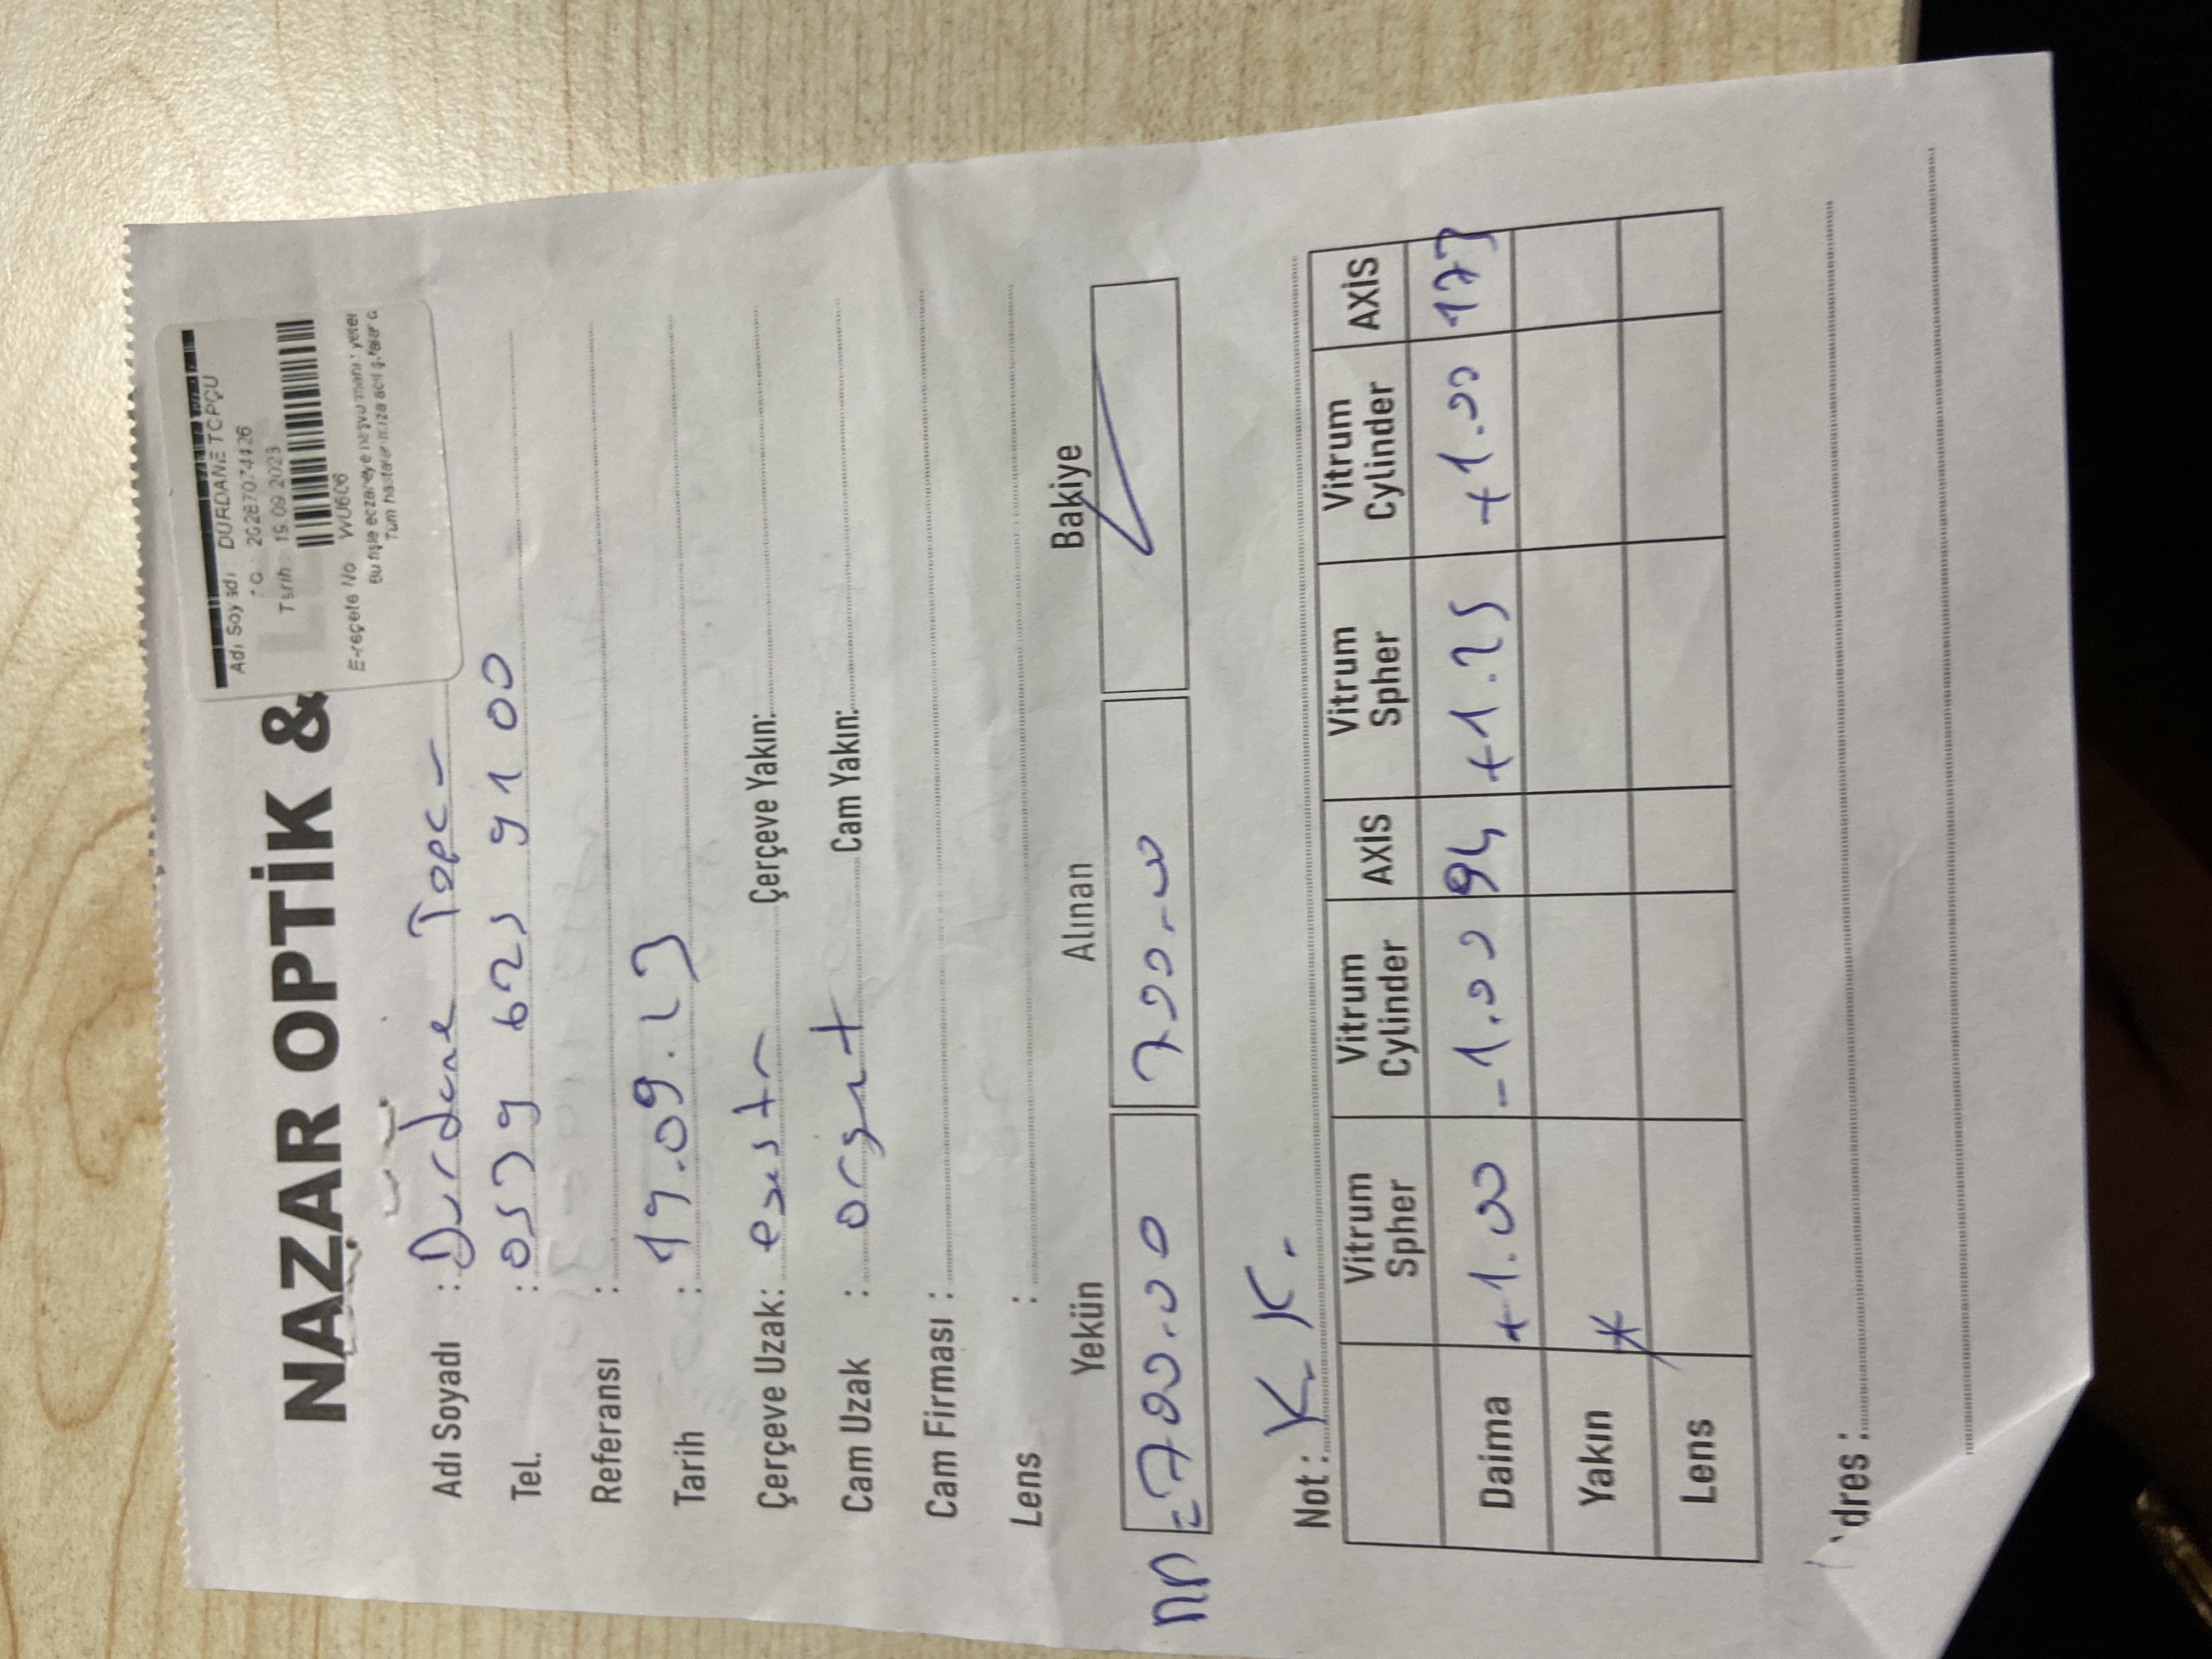 NAZAR OPTİK &
Adı Soyadı DURDANE TOPÇU
TC 20287074426
Tarih 19.09.2023
E-reçete No
Bu fişle eczaneye
Adı Soyadı : Durdane Topcu
Tel. : 0539 625 91 00
Referansı :
Tarih : 19.09.23
Çerçeve Uzak: Çerçeve Yakın:
Cam Uzak : Cam Yakın:
Cam Firması :
Lens :
Yekün Alınan Bakiye
=700.00 700.00
Not : K.K.
Vitrum Spher Vitrum Cylinder AXİS Vitrum Spher Vitrum Cylinder AXİS
Daima +1.00 -1.00 94 +1.25 +1.00 173
Yakın
Lens
dres :